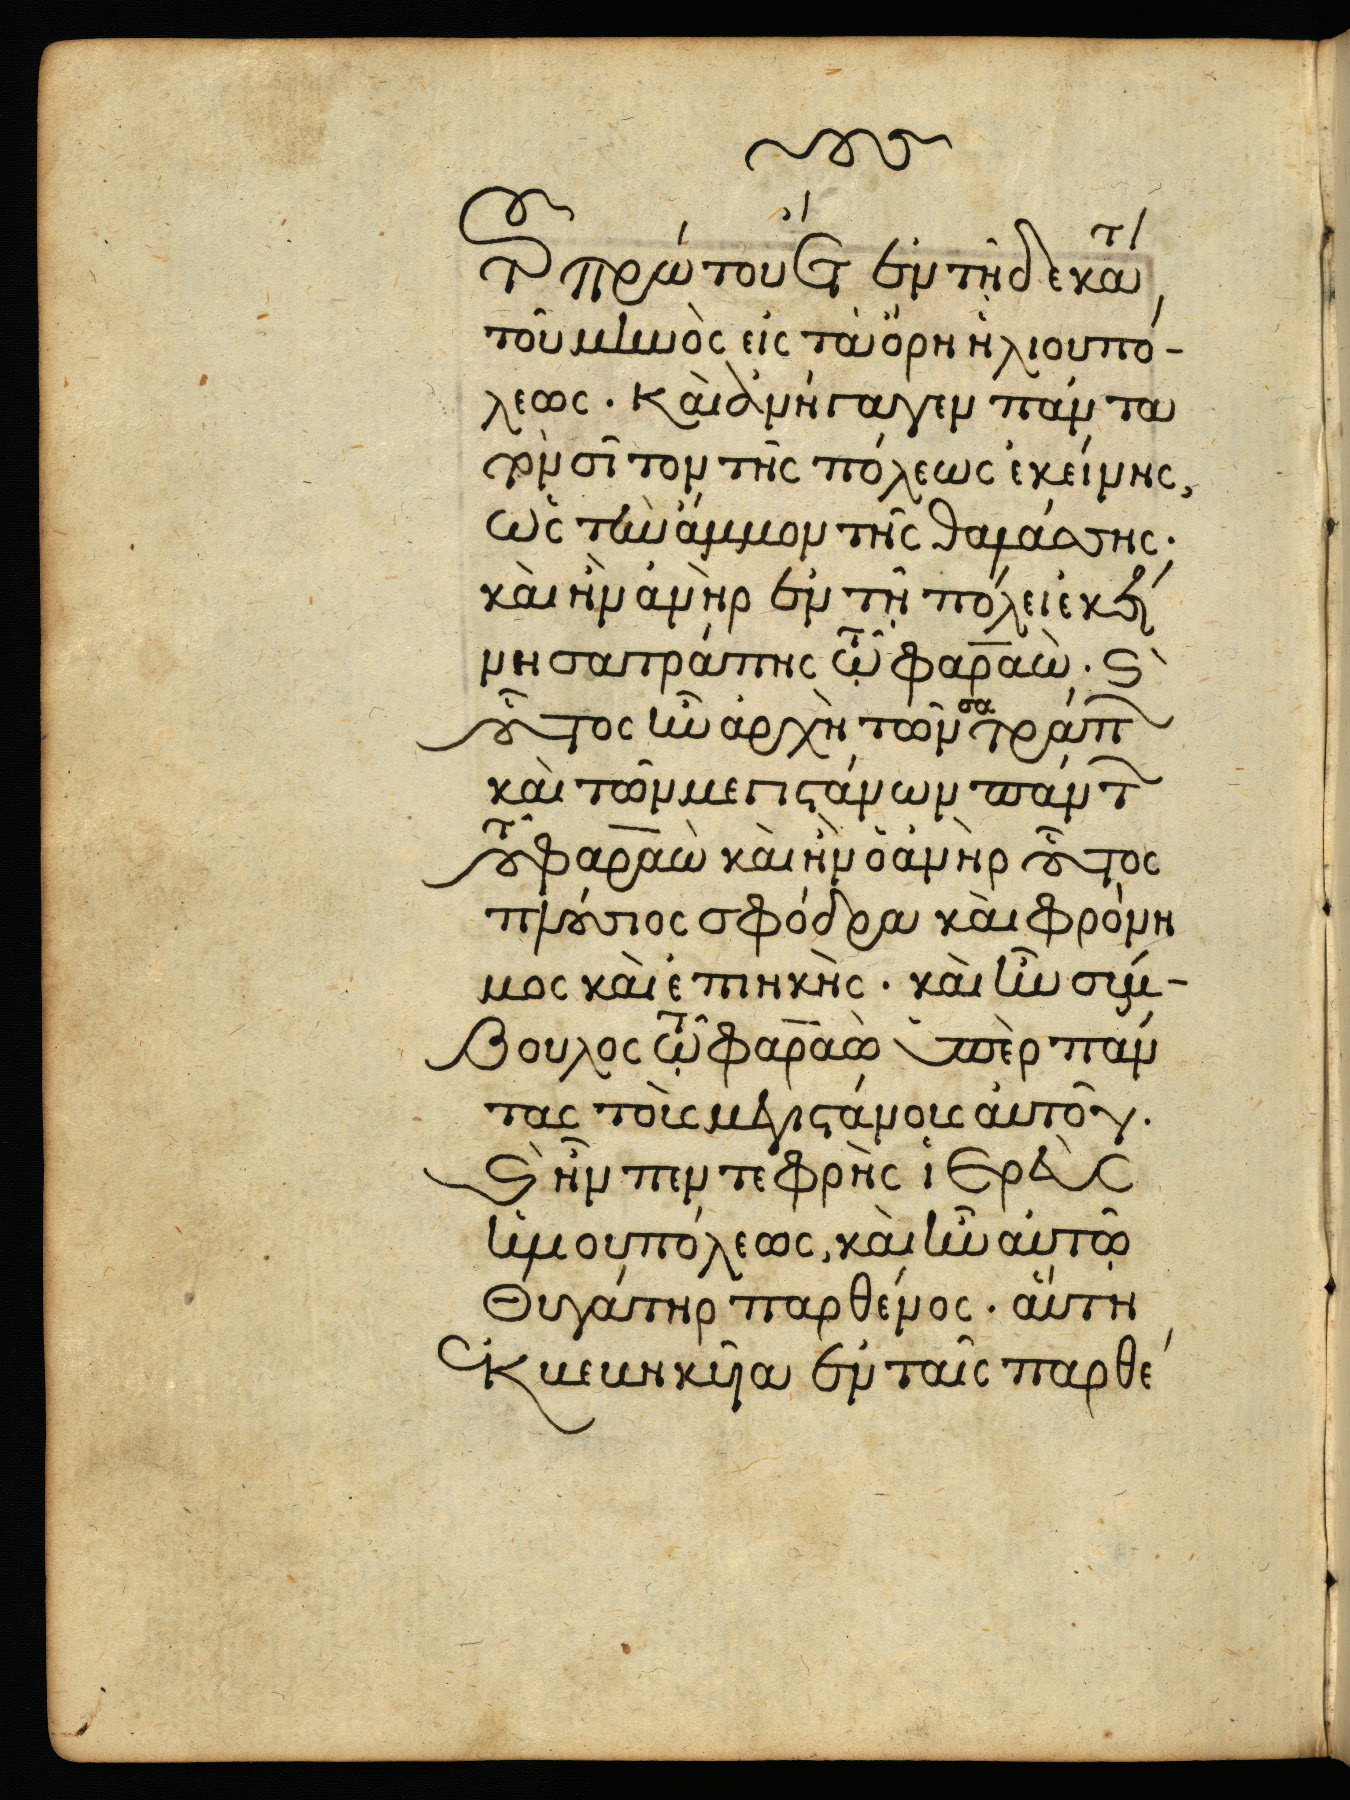 τοῦ πρώτου ἔτ ἐν τῆ δεκάτ
τοῦ μηνὸς εἰς τὰ ὅρη ἡλιουπό-
λεως · καὶ συνήγαγεν πάντα
τὸν σῖτον τῆς πόλεως ἐκείνης,
ὡς τὴν ἄμμον τῆς θαλάσσης ·
καὶ ἦν ἀνὴρ ἐν τῆ πόλει ἐκεί
νη σατράπης τοῦ φαραὼ · καὶ
οὗτος ἦν ἀρχὴ τῶν σατράπ
καὶ τῶν μεγιστάνων πάντ
τοῦ φαραὼ καὶ ἦν ὁ ἀνὴρ οὗτος
πλούσιος σφόδρα καὶ φρόνη
μος καὶ ἐπηκὴς · καὶ ἦν σύμ-
βουλος τοῦ φαραὼ ὑπὲρ πάν
τας τοὺς μεγιστάνους αὐτοῦ.
καὶ ἦν πεντεφρὴς ἱερεὺς
ἡλιουπόλεως, καὶ ἦν αὐτῶ
θυγάτηρ παρθένος · αὕτη
ἐκ ταῖς παρθέ